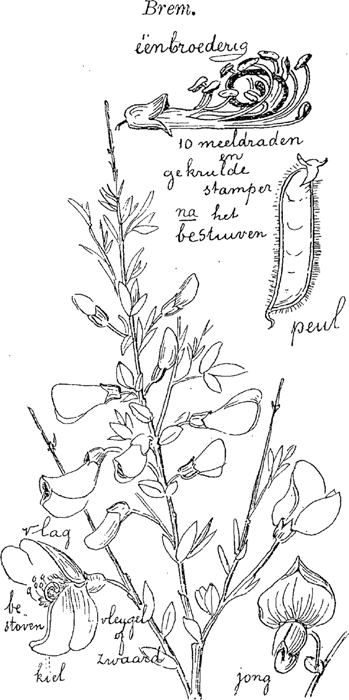 Brem.
éénbroederig
10 meeldraden
en
gekrulde
stamper
na het
bestuiven
peul
vlag
be
stoven
vleygel
of
zwaard
kiel
jong